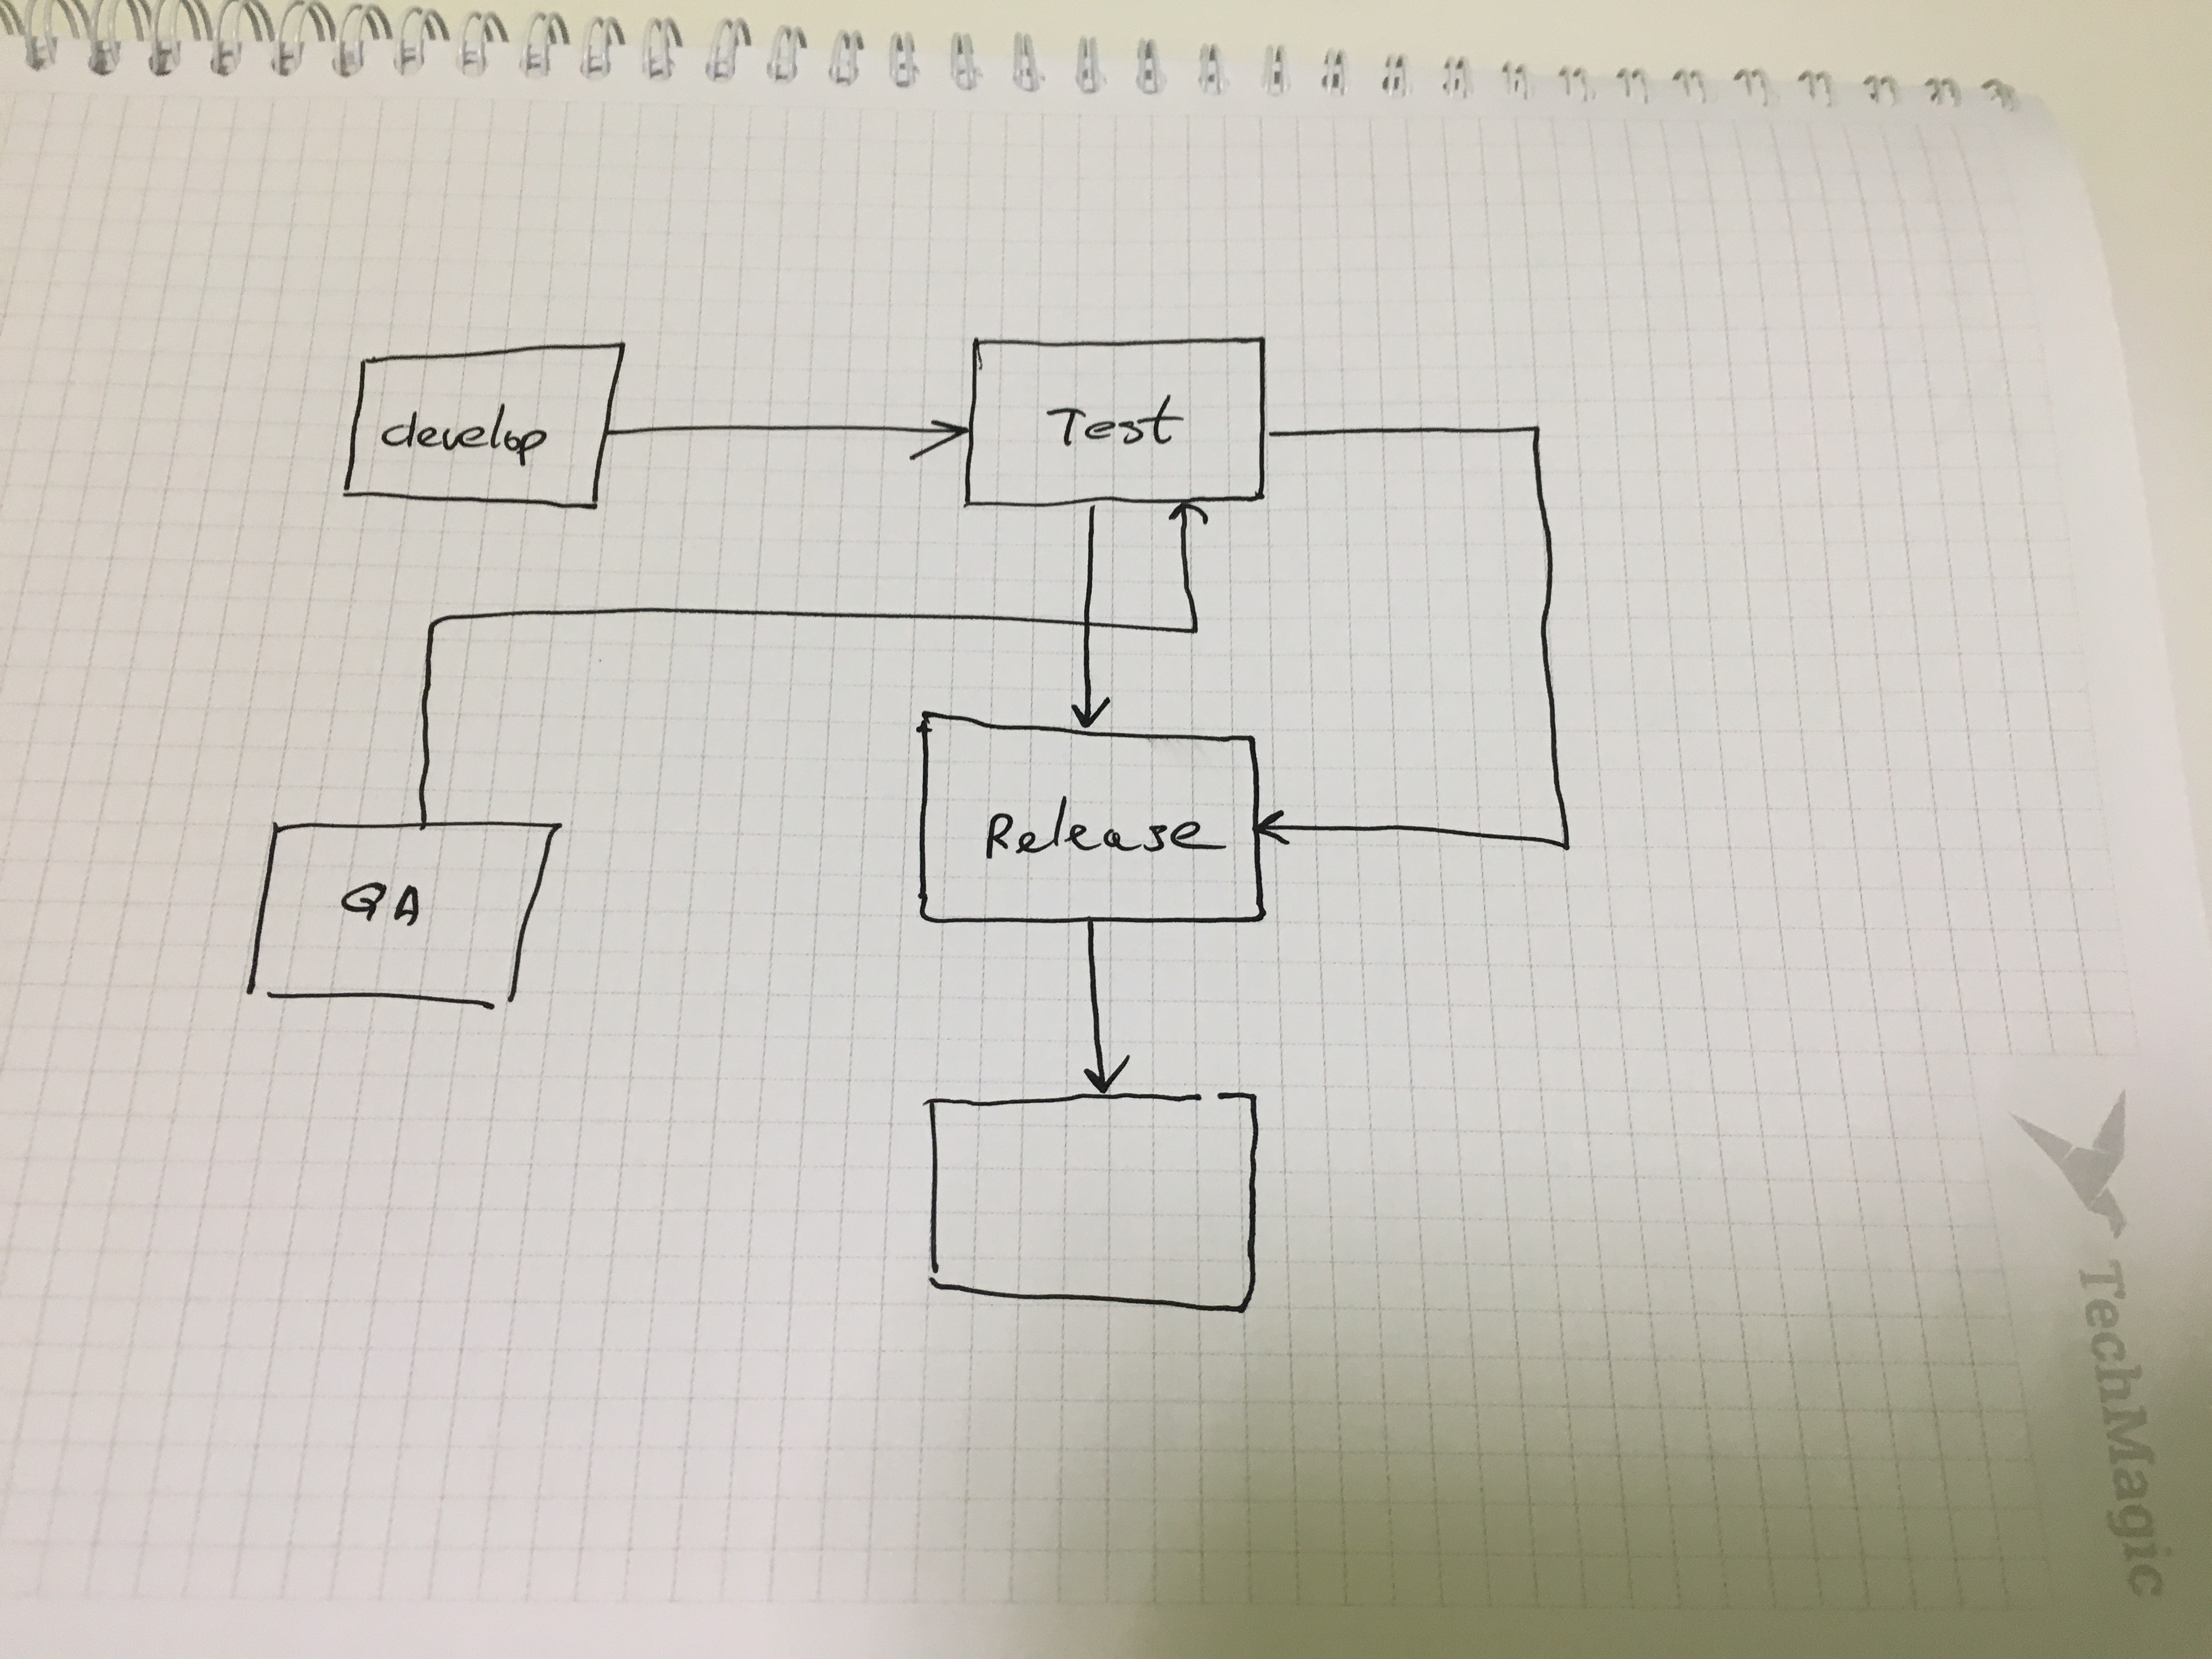 develop
Test
Release
QA
TechMagic